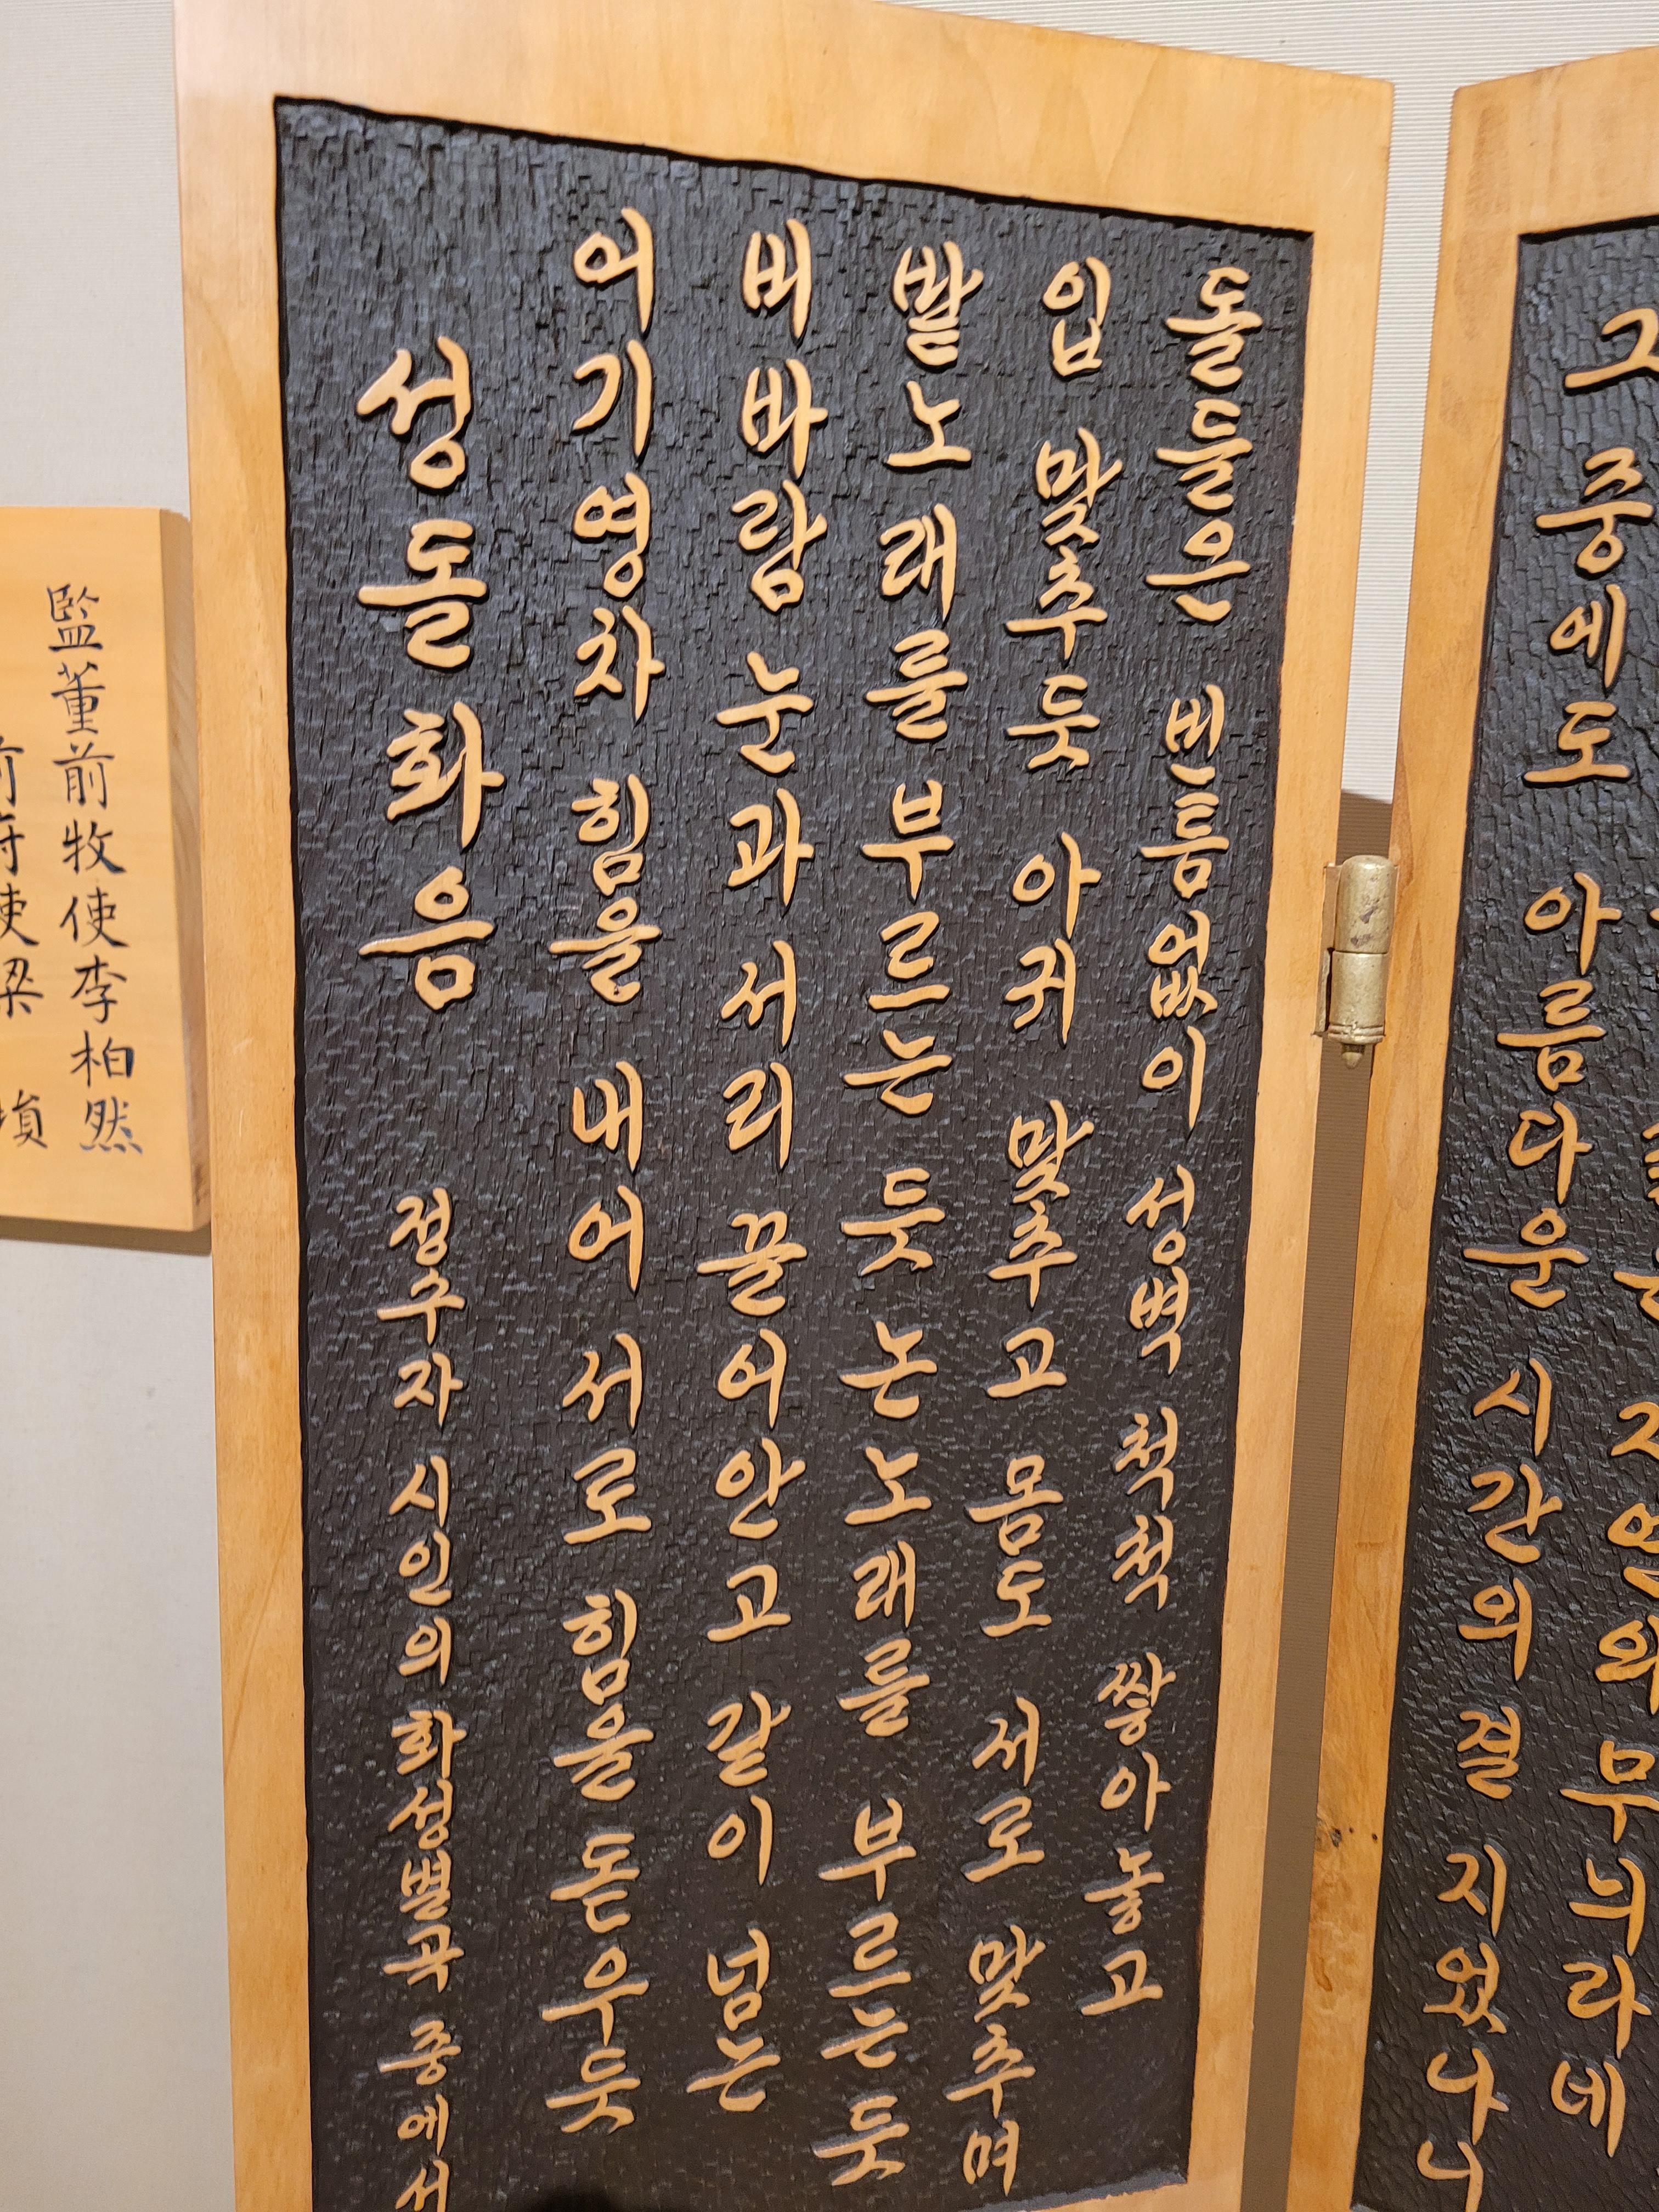 자연의 무늬라네
그 중에도 아름다운 시간의 결 지었나니
돌들은 빈틈없이 성벽 척척 쌓아 놓고
입 맞추듯 아귀 맞추고 몸도 서로 맞추며
밭노래를 부르는 듯 논노래를 부르는 듯
비바람 눈과 서리 끌어안고 같이 넘는
어기영차 힘을 내어 서로 힘을 돋우듯
성돌화음 정수자 시인의 화성별곡 중에서
監董前牧使李柏然
使梁